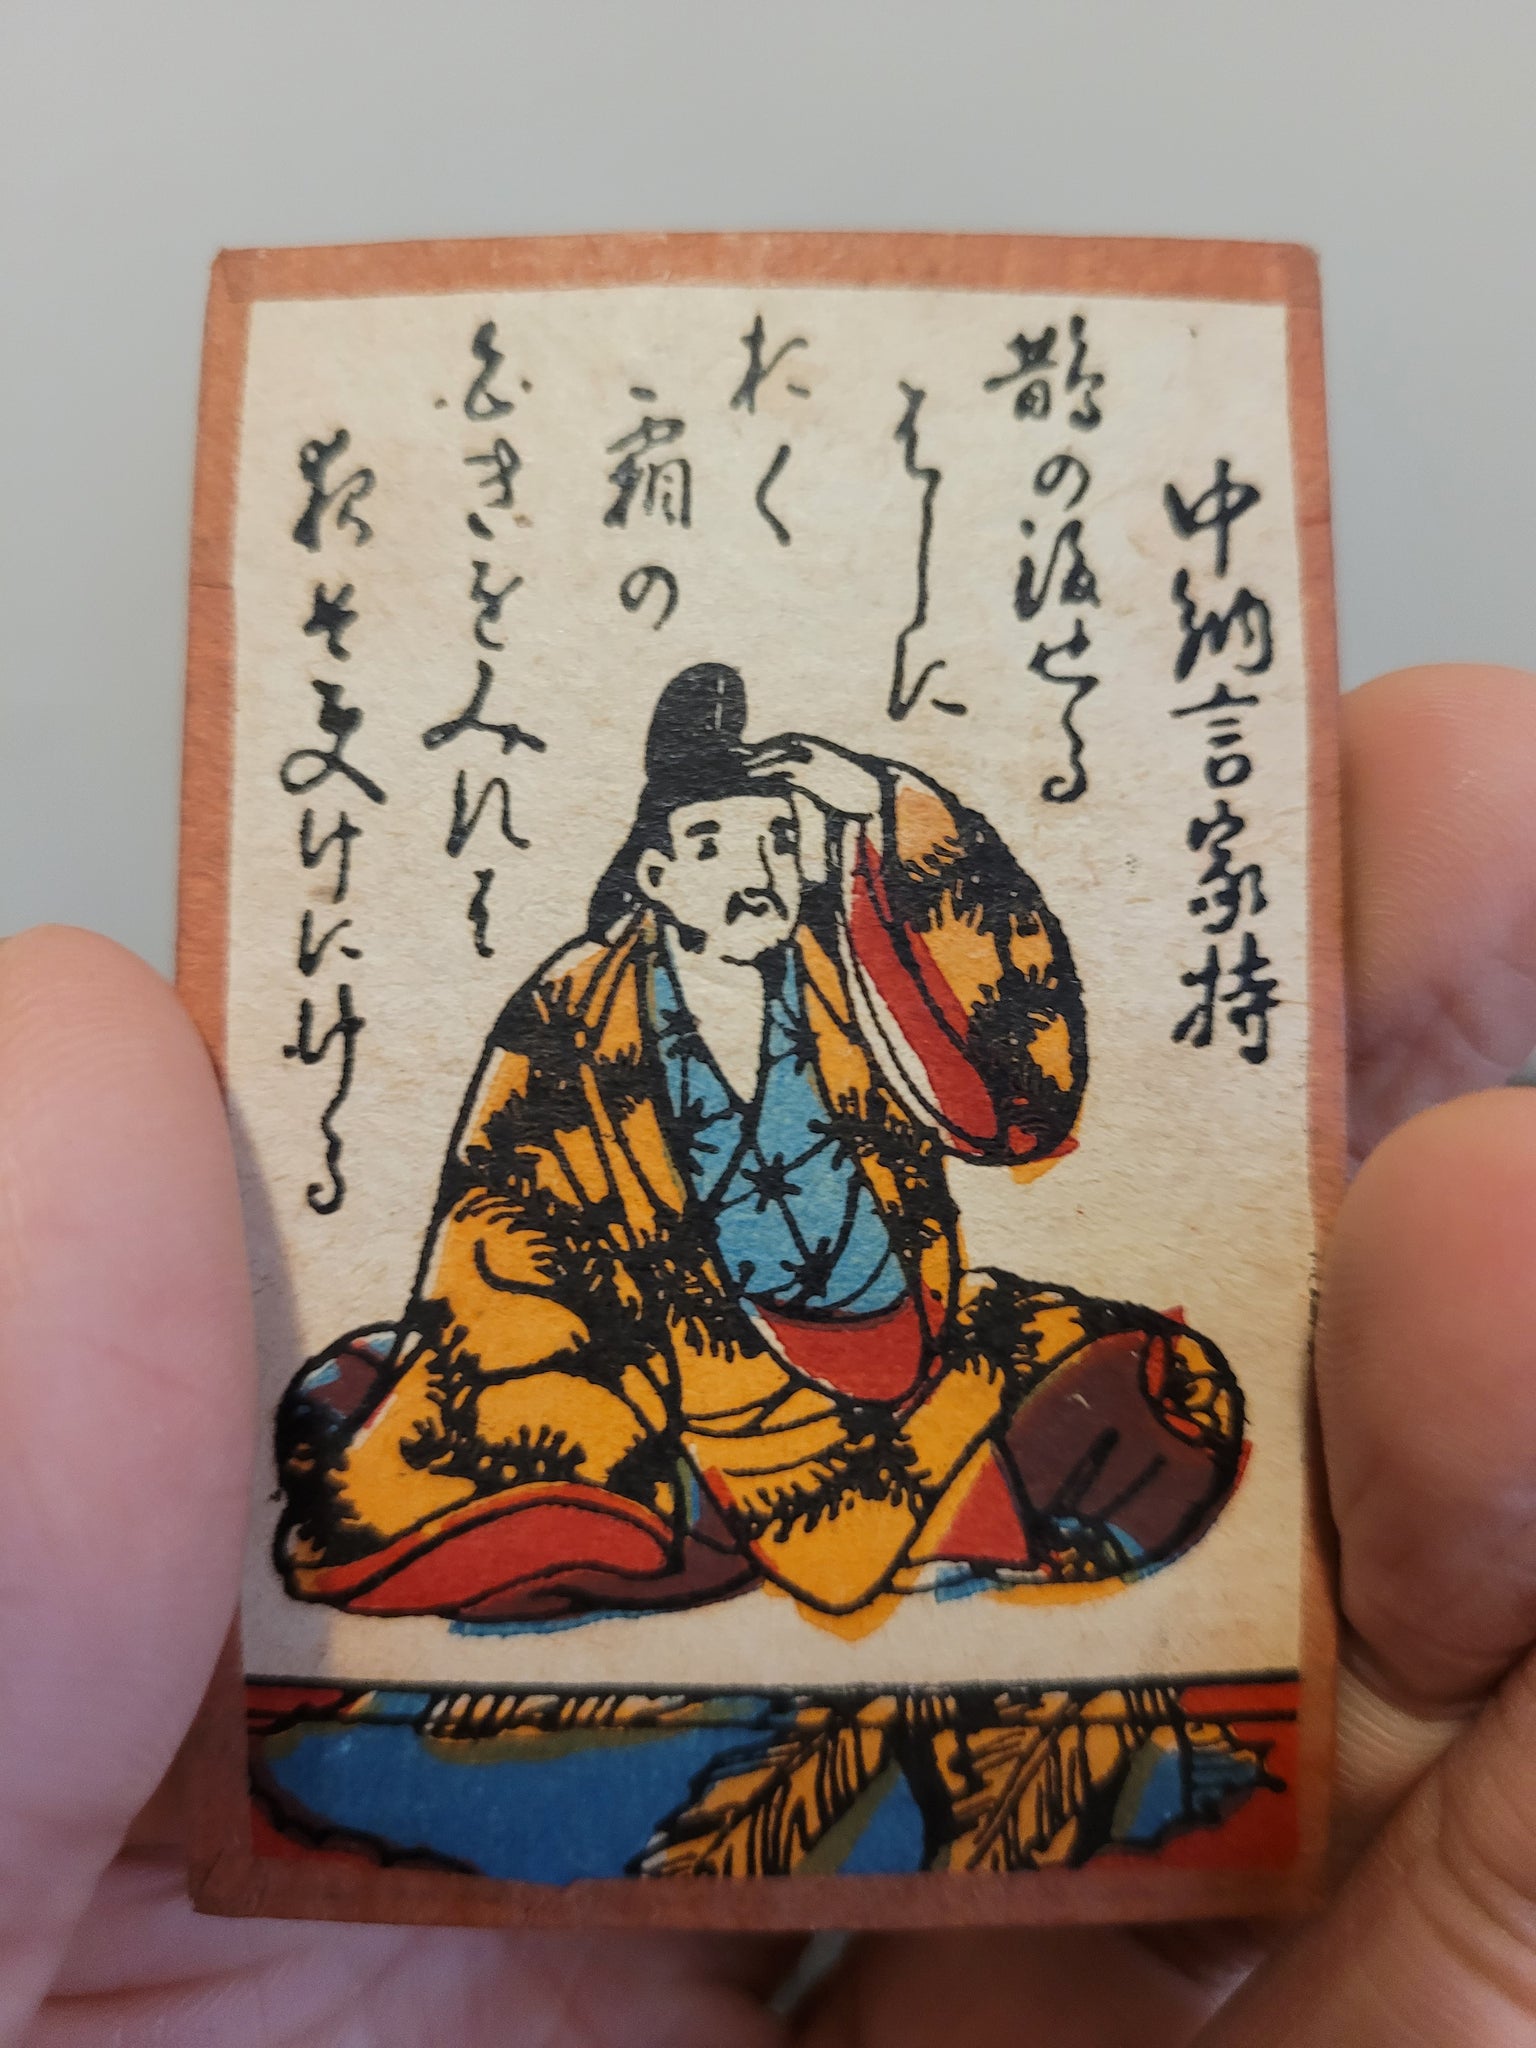 中納言家持
鵲の渡せる
はしに
おく
霜の
白きをみれは
夜そ更けにける